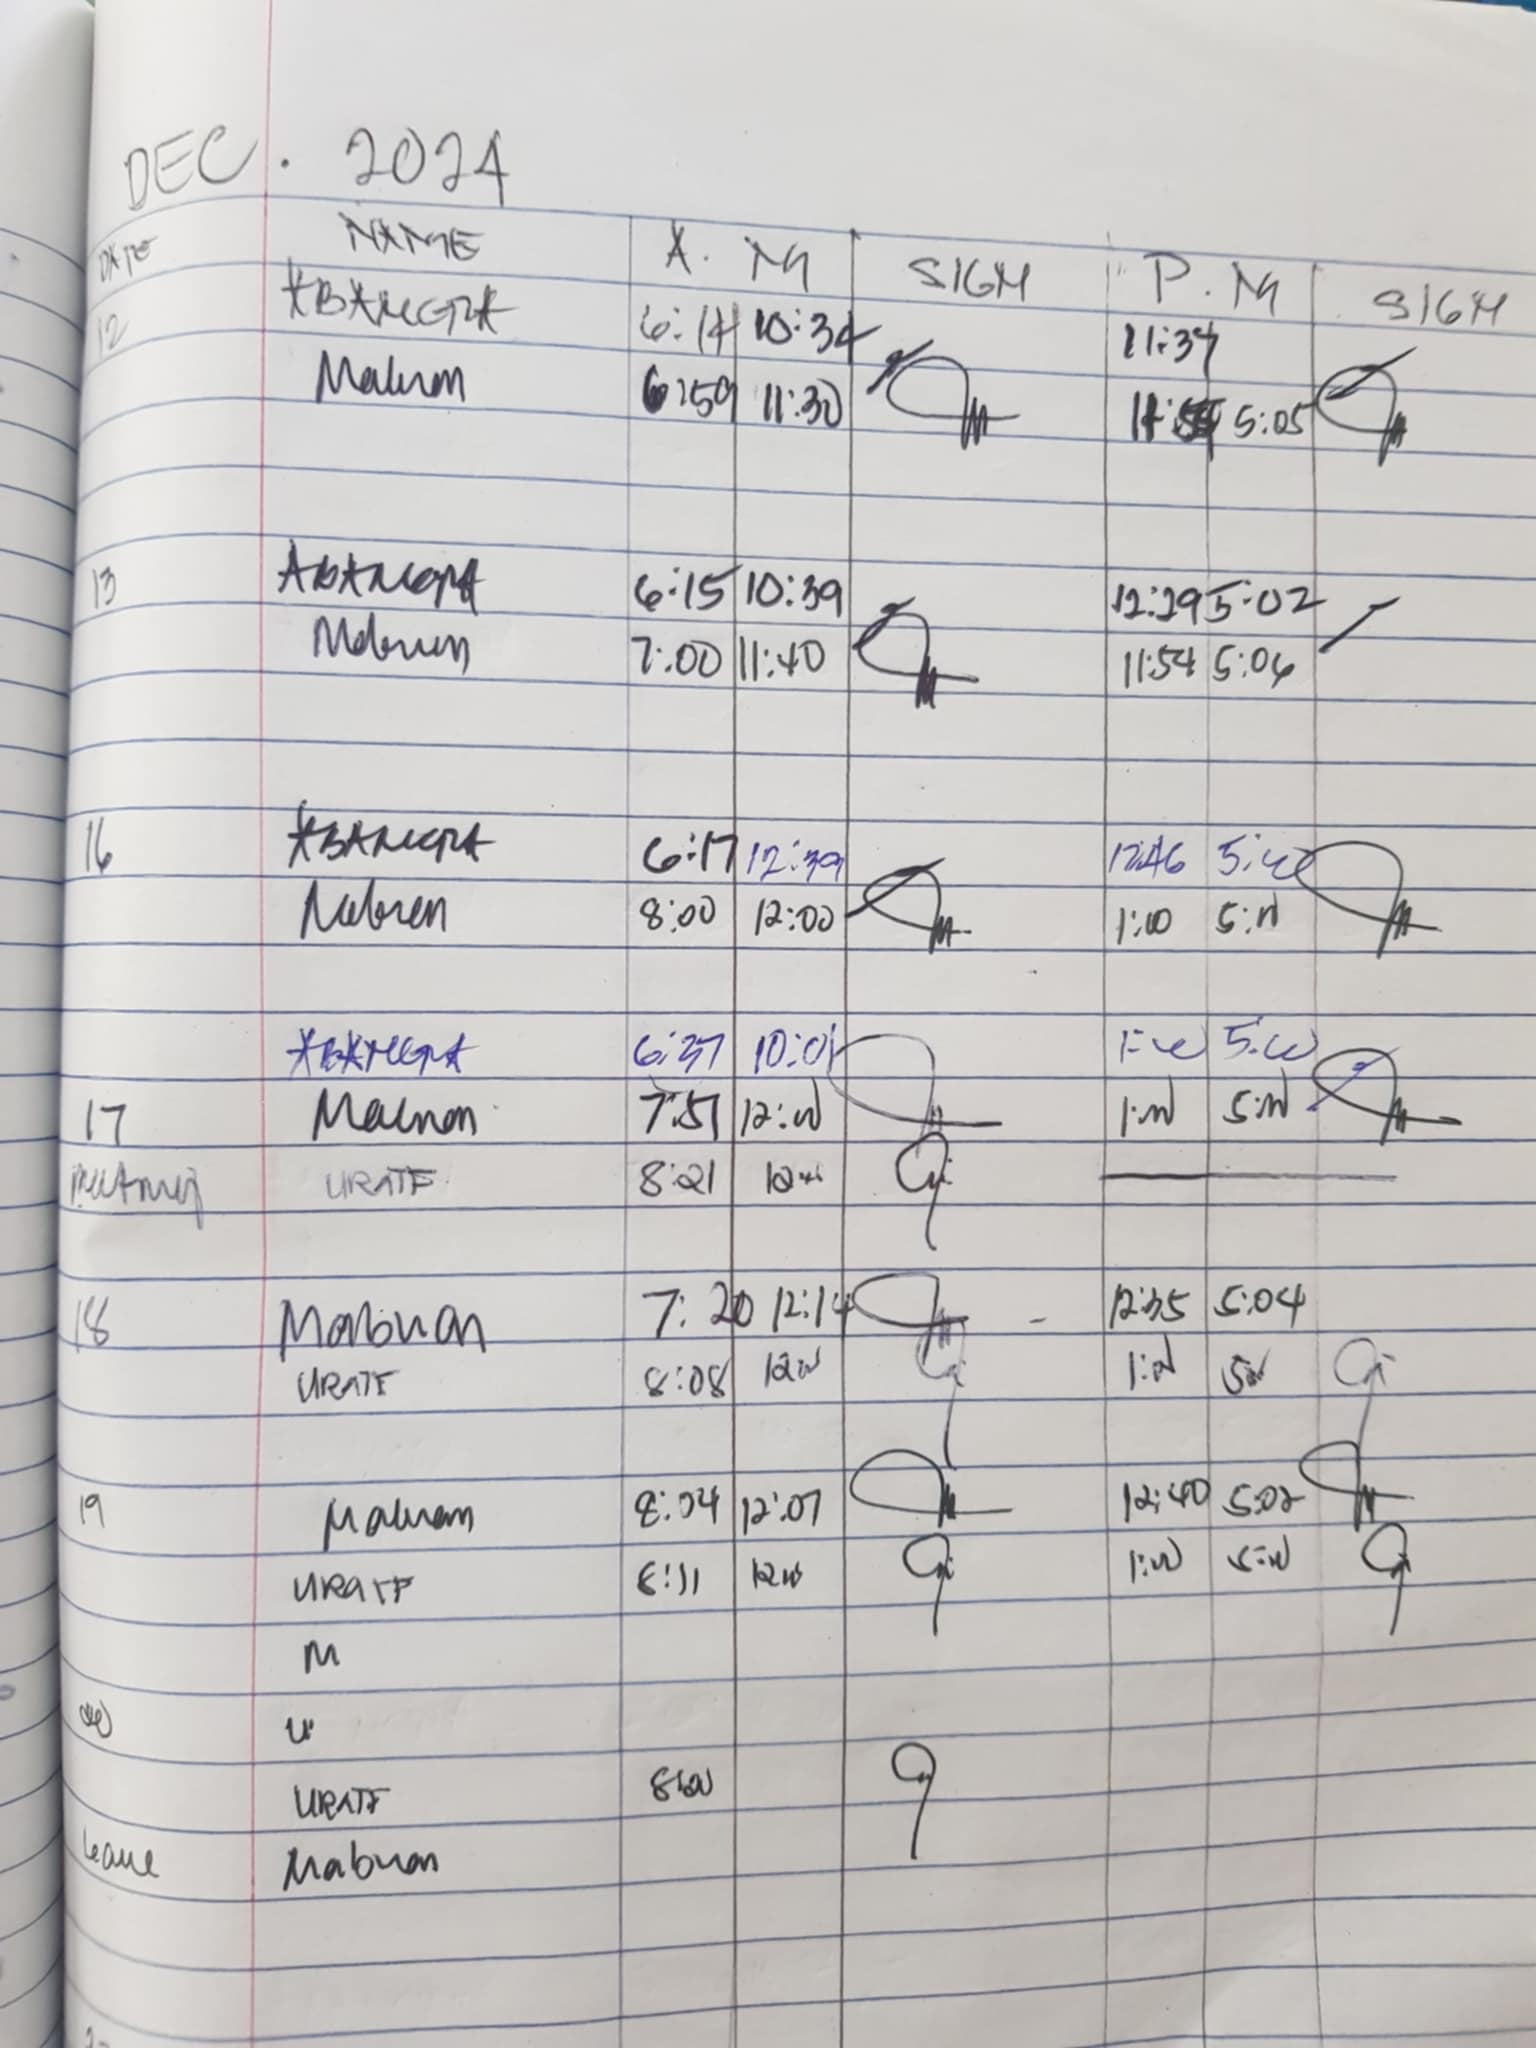 DEC. 2024
DATE NAME A. M SIGN P. M SIGN
12 ABANGRA 6:14 10:34 11:34
Mabuan 6:59 11:30 5:05
13 ABANGRA 6:15 10:39 12:29 5:02
Mabuan 7:00 11:40 11:54 5:06
16 ABANGRA 6:17 12:39 12:46 5:00
Mabuan 8:00 12:00 1:00 5:00
ABANGRA 6:37 10:01 1:00 5:00
17 Mabuan 7:51 12:00 1:00 5:00
URATE 8:21 12:00
18 Mabuan 7:20 12:14 12:35 5:04
URATE 8:08 12:00 1:00 5:00
19 Mabuan 8:04 12:07 12:40 5:02
URATE 8:11 12:00 1:00 5:00
M
U
URATE 8:00
Leave Mabuan